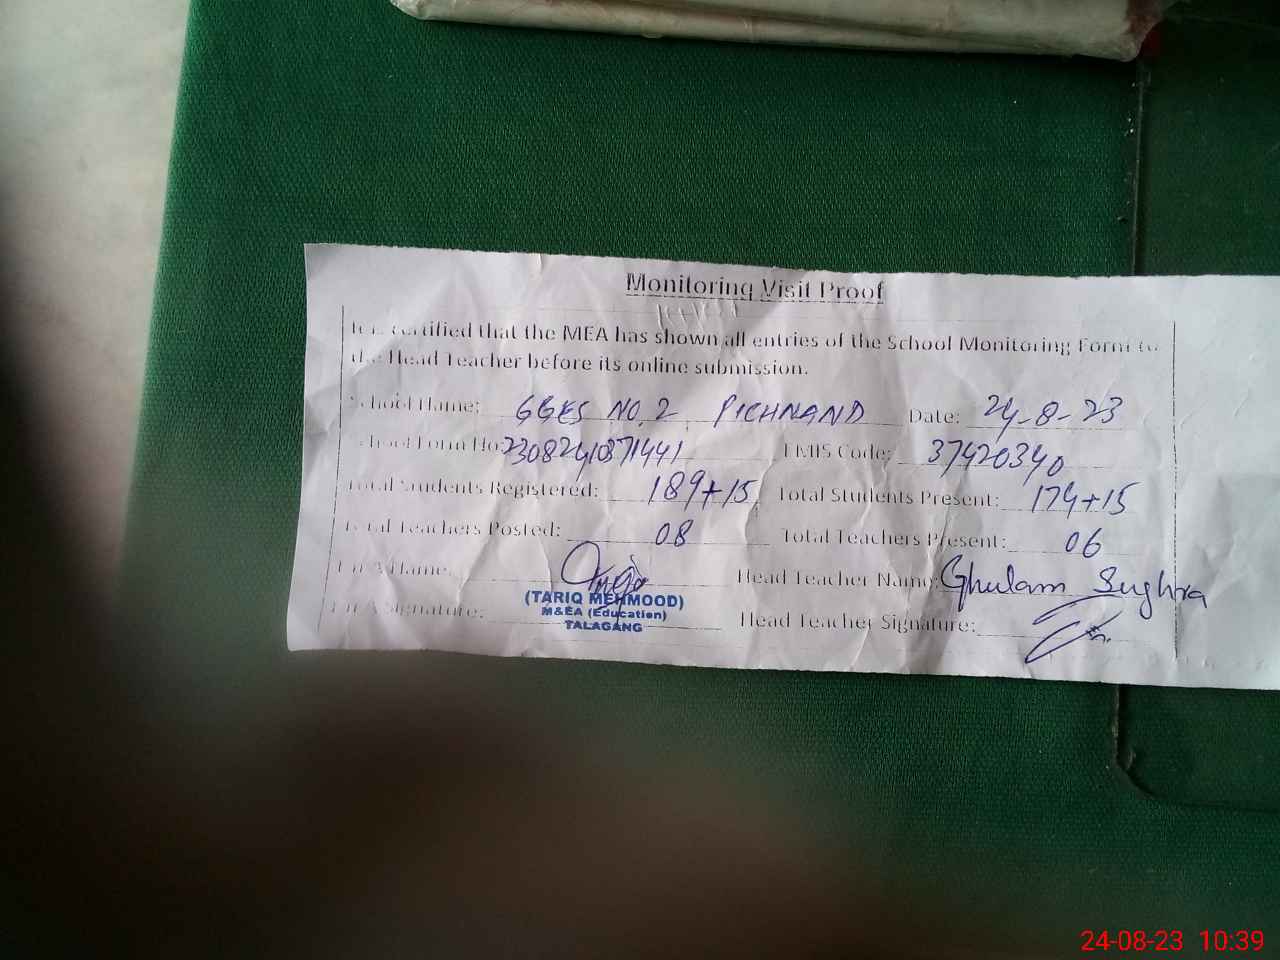 Monitoring Visit Proof
It is certified that the MEA has shown all entries of the School Monitoring Form to
the Head Teacher before its online submission.
School Name: GGES NO. 2 PICHNAND Date: 24-8-23
School Form No: 23082410871441 EMIS Code: 37420340
Total Students Registered: 189+15 Total Students Present: 174+15
Total Teachers Posted: 08 Total Teachers Present: 06
Name: Head Teacher Name: Ghulam Sughra
(TARIQ MEHMOOD)
M&EA (Education)
Signature: Head Teacher Signature:
TALAGANG
24-08-23 10:39